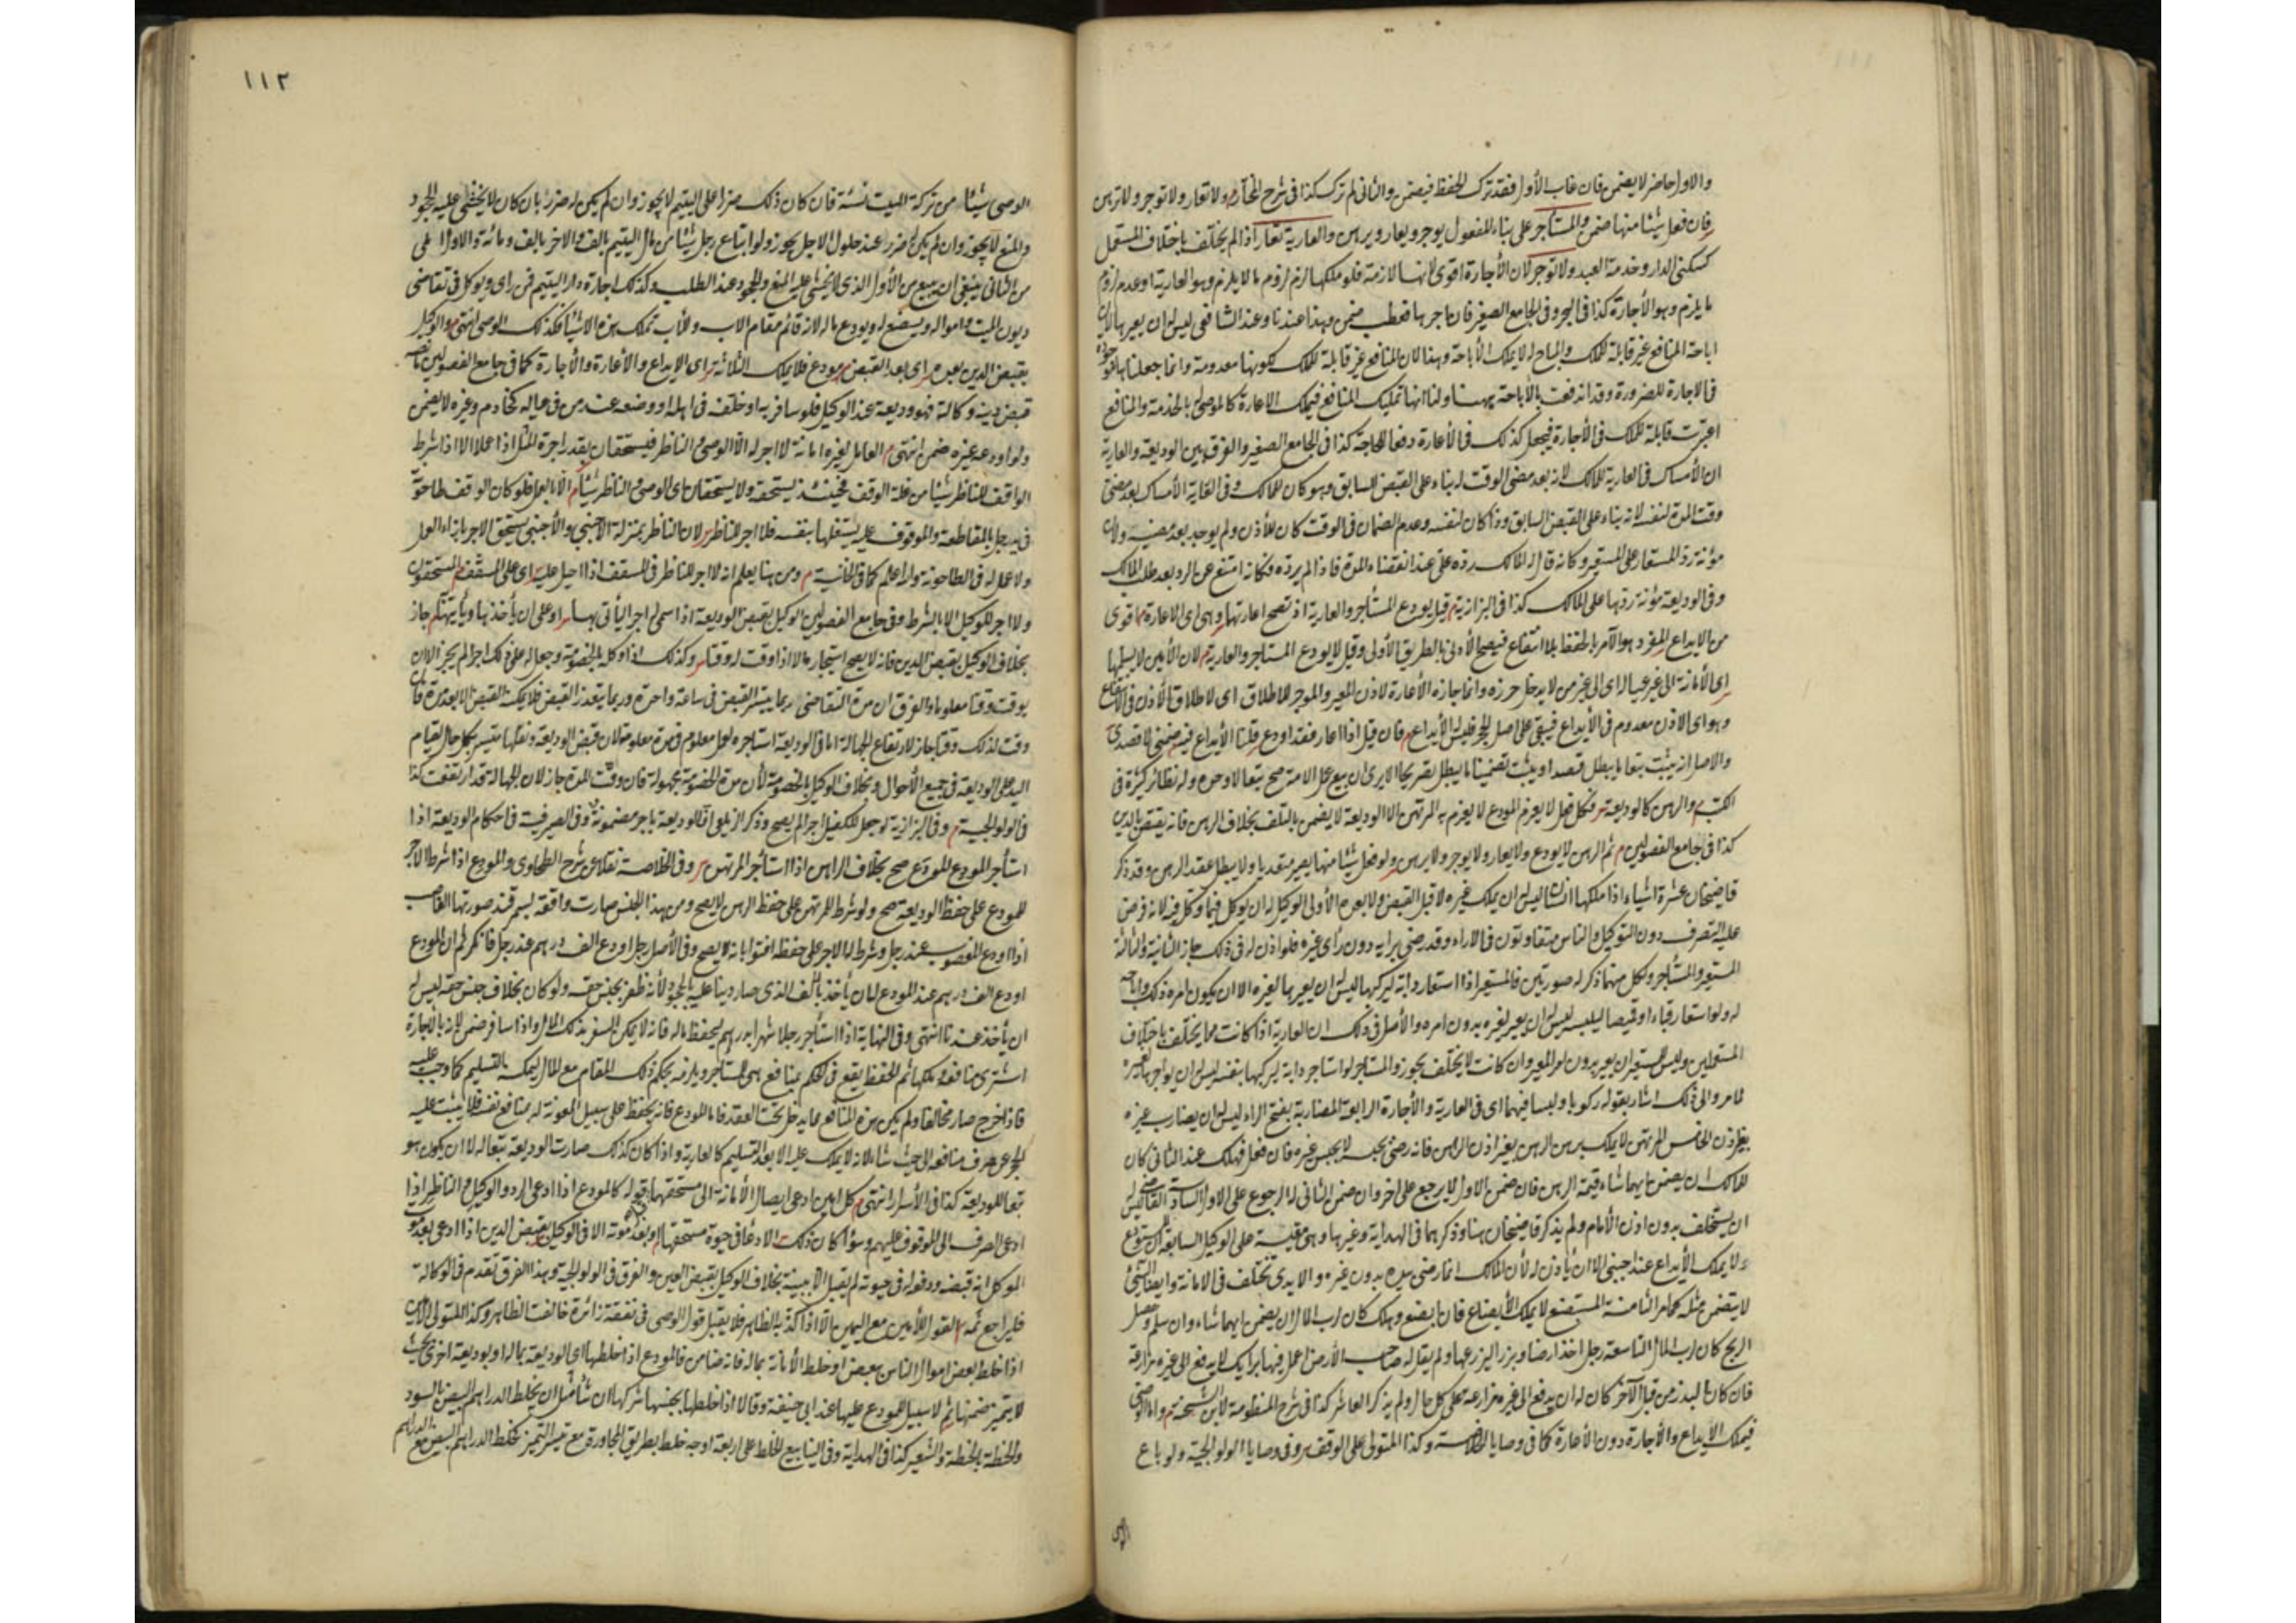 والاول حاضر لا يضمن فان غاب الأول فقد ترك الحفظ فيضمن والثاني لم يترك كذا في شرح المجمع ولا تعار ولا توجر ولا ترهن
فان فعل شيئا منها ضمن والمستأجر على بناء المفعول يوجر ويعار ويرهن والعارية تعار اذا لم يختلف باختلاف المستعمل
كسكنى الدار وخدمة العبد ولا توجر لان الأجارة اقوى لانها لازمة فلو ملكها لزم لزوم ما لا يلزم وهو العارية او عدم لزوم
ما يلزم وهو الأجارة كذا في البحر وفي الجامع الصغير فان اجرها فعطب ضمن وهذا عندنا وعند الشافعي ليس له ان يعيرها لان
اباحة المنافع غير قابلة للملك والمباح له لا يملك الأباحة وهذا لان المنافع غير قابلة للملك لكونها معدومة وانما جعلناها موجودة
في الاجارة للضرورة وقد اندفعت بالأباحة ههنا ولنا انها تمليك المنافع فيملك الاعارة كالموصى له بالخدمة والمنافع
اعتبرت قابلة للملك في الأجارة فيجعل كذلك في الأعارة دفعا للحاجة كذا في الجامع الصغير والفرق بين الوديعة والعارية
ان الأمساك في العارية للمالك لانه بعد مضى الوقت له بناء على القبض السابق وهو كان للمالك وفي الغاية الأمساك بعد مضى
وقت المدة لنفسه لانه بناء على القبض السابق وذا كان لنفسه وعدم الضمان في الوقت كان للأذن ولم يوجد بعد مضيه ولان
مؤنة رد المستعار على المستعير وكانه قال له المالك رده علي عند انقضاء المدة فاذا لم يرده فكانه امتنع عن الرد بعد طلب المالك
وفي الوديعة مؤنة ردها على المالك كذا في البزازية قيل يودع المستأجر والعارية اذ تصح اعارتهما وهى اى الاعارة اقوى
من الايداع المفرد هو الآمر بالحفظ بلا انتفاع فيصح الأدنى بالطريق الأولى وقيل لا يودع المستاجر والعارية لان الأمين لا يسلمها
اى الأمانة الى غير عياله اى الى غير من لا يدخل حرزه وانما جازه الأعارة لاذن المعير والموجر للاطلاق اى لاطلاق الأذن في الانتفاع
وهو اى الاذن معدوم في الأيداع فيبقى على اصل الحجر فليس له الأيداع فان قيل اذا اعار فقد اودع قلنا الأيداع فيه ضمني لا قصدى
والاصل انه يثبت تبعا ما يبطل قصدا ويثبت تضمينا ما يبطل تصريحا الا يرى ان بيع حمل الامة صح تبعا لا وحده وله نظائر كثيرة في
الكتب والرهن كالوديعة فكل فعل لا يغرم المودع لا يغرم به المرتهن الا ان الوديعة لا يضمن بالتلف بخلاف الرهن فانه يقتضى بالدين
كذا في جامع الفصولين ثم الرهن لا يودع ولا يعار ولا يوجر ولا يرهن ولو فعل شيئا منها يصير متعديا ولا يبطل عقد الرهن وقد ذكر
قاضيخان عشرة اشياء اذا ملكها انسان ليس له ان يملك غيره لا قبل القبض ولا بعده الأولى الوكيل له ان يوكل فيما وكل فيه لانه فوض
عليه التصرف دون التوكيل والناس متفاوتون في الاراء وقد رضى برايه دون رأى غيره فلو اذن له في ذلك جاز الثانية والثالثة
المستعير والمستأجر ولكل منهما ذكر له صورتين فالمستعير اذا استعار دابة ليركبها ليس له ان يعيرها لغيره الا ان يكون امره ذلك واباحه
له ولو استعار قباء او قميصا ليلبسه ليس له ان يعير لغيره بدون امره والأصل في ذلك ان العارية اذا كانت مما يختلف باختلاف
المستعملين وليس للمستعير ان يعير بدون امر المعير وان كانت لا يختلف يجوز والمستاجر لو استاجر دابة ليركبها بنفسه ليس له ان يؤاجرها لغيره
لما مر والى ذلك اشار بقوله ركوبا ولبسا فيهما اى في العارية والأجارة الرابعة المضاربة بفتح الراء ليس له ان يضارب غيره
بغير اذن الخامس المرتهن لا يملك رهن الرهن بغير اذن الراهن فانه رضى بحبسه لا بحبس غيره فان فعل فهلك عند الثاني كان
للمالك ان يضمن ايهما شاء قيمة الرهن فان ضمن الاول لا يرجع على اخر وان ضمن الثاني له الرجوع على الاول السادسة القاضى ليس له
ان يستخلف بدون اذن الأمام ولم يذكر قاضيخان هنا وذكرهما في الهداية وغيرها وهى مقيسة على الوكيل السابعة المستودع
ولا يملك الأيداع عند اجنبى الا ان يأذن له لأن المالك انما رضى بيده بدون غيره والايدى تختلف في الامانة وايضا الشئ
لا يتضمن مثله كما مر الثامنة المستبضع لا يملك الأبضاع فان ابضع وهلك كان لرب المال ان يضمن ايهما شاء وان سلم وحصل
الربح كان لرب المال التاسعة رجل اخذ ارضا وبزرا ليزرعها ولم يقل له صاحب الأرض اعمل فيها برايك لا يدفع الى غيره مزارعة
فان كان البذر من قبل الآخر كان له ان يدفع الى غيره مزارعة على كل حال ولم يذكر العاشر كذا في شرح المنظومة لابن الشحنة واما الوصى
فيملك الايداع والأجارة دون الأعارة كما في وصايا الخلاصة وكذا المتولى على الوقف وفي وصايا الولوالجية ولو باع
الوصى
١١٢
الوصى شيئا من تركة الميت نسئة فان كان ذلك ضررا على اليتيم لا يجوز وان لم يكن له ضرر بان كان لا يخشى عليه الجحود
والمنع لا يجوز وان لم يكن له ضرر عند حلول الاجل يجوز ولو ابتاع رجل شيئا من مال اليتيم بالف والاخر بالف ومائة والاول املى
من الثاني ينبغى ان يبيع من الأول الذى لا يخشى عليه المنع والجحود عند الطلب وكذلك اجارة دار اليتيم فمن راى ويوكل في تقاضى
ديون الميت وامواله ويبضع له ويودع ماله لانه قائم مقام الاب والأب يملك هذه الاشياء فكذلك الوصى انتهى والوكيل
بقبض الدين بعده اى بعد القبض مودع فلا يملك الثلاثة اى الايداع والأعارة والأجارة كما في جامع الفصولين
قبض دينه وكالة فهو وديعة عند الوكيل فلو سافر به او خلفه في اهله او وضعه عند من في عياله كخادم وغيره لا يضمن
ولو اودعه غيره ضمن انتهى العامل لغيره امانة لا اجر له الا الوصى والناظر فيستحقان بقدر اجرة المثل اذا عملا الا اذا شرط
الواقف للناظر شيئا من غلة الوقف فحينئذ يستحقه ولا يستحقان اى الوصى والناظر شيئا الا بالعمل فلو كان الوقف طاحونة
في يد رجل بالمقاطعة والموقوف عليه يستغلها بنفسه فلا اجر للناظر لان الناظر بمنزلة الأجنبى والأجنبى يستحق الاجر بازاء العمل
ولا عمل له في الطاحونة والله اعلم كما في الخانية ومن هنا يعلم انه لا اجر للناظر في المسقف اذا احيل عليه اى على المسقف المستحقون
ولا اجر للوكيل الا بالشرط وفي جامع الفصولين الوكيل بقبض الوديعة اذا سمى له اجر ليأتى بها او على ان يأخذها ويأتيه جاز
بخلاف الوكيل بقبض الدين فانه لا يصح استيجاره الا اذا وقت له وقتا وكذلك اذا وكله بالخصومة وجعل له على ذلك اجرا لم يجز الا ان
يوقت وقتا معلوما والفرق ان مدة التقاضى ربما يتيسر القبض في ساعة واحدة وربما يتعذر القبض فلا يمكنه القبض الا بعد مدة فان
وقت لذلك وقتا جاز لارتفاع الجهالة اما في الوديعة استاجره لعمل معلوم في مدة معلومة لان قبض الوديعة ونقلها متيسر بكل حال لقيام
اليد على الوديعة في جميع الأحوال وبخلاف الوكيل بالخصومة لأن مدة الخصومة مجهولة فان وقت المدة جاز لان الجهالة قد ارتفعت كذا
في الولوالجية وفي البزازية لو جعل للكفيل اجرا لم يصح وذكر الزيلعى ان الوديعة باجر مضمونة وفي الصيرفية في احكام الوديعة اذا
استأجر المودع المودع صح بخلاف الراهن اذا استأجر المرتهن وفي الخلاصة نقلا عن شرح الطحاوى والمودع اذا شرط الاجر
للمودع على حفظ الوديعة صح ولو شرط للمرتهن على حفظ الرهن لا يصح ومن هذا الجنس صارت واقعة بسمرقند صورتها الغاصب
اذا اودع المغصوب عند رجل وشرط له الاجر على حفظه افتوا بانه لا يصح وفي الأصل رجل اودع الف درهم عند رجل فانكر ثم ان المودع
اودع الف درهم عند المودع له ان يأخذ بالف الذى صار دينا عليه بالجحود لأنه ظفر بجنس حقه ولو كان بخلاف جنس حقه ليس له
ان يأخذ عندنا انتهى وفي النهاية اذا استأجر رجلا شهرا بدرهم ليحفظ ماله فانه لا يمكن السفر بذلك المال واذا سافر ضمن لانه بالاجارة
اشترى منافعه وملكها ثم الحفظ يقع في الحكم بمنافع هى للمستأجر ويلزمه بحكم ذلك المقام مع المال ليمكنه بالتسليم كما وجب عليه
فاذا خرج صار مخالفا ولم يكن هذه المنافع مما يدخل تحت العقد فاما المودع فانه يحفظ على سبيل المعونة له بمنافع نفسه فلا يثبت عليه
الحجر عن صرف منافعه الى حيث شاء لانه لا يملك عليه الا بعد التسليم كالعارية واذا كان كذلك صارت الوديعة تبعا له لا ان يكون هو
تبعا للوديعة كذا في الأسرار انتهى كل امين ادعى ايصال الأمانة الى مستحقها قبل قوله كالمودع اذا ادعى الرد والوكيل والناظر اذا
ادعى الصرف الى الموقوف عليهم وسواء كان ذلك الادعاء في حيوة مستحقها او بعد موته الا في الوكيل بقبض الدين اذا ادعى بعد موت
الموكل انه قبضه ودفعه له في حيوته لم يقبل الا ببينة بخلاف الوكيل بقبض العين والفرق في الولوالجية وهذا الفرق تقدم في الوكالة
فليراجع ثمه القول للأمين مع اليمين الا اذا كذبه الظاهر فلا يقبل قول الوصى في نفقة زائدة خالفت الظاهر وكذا المتولى الامين
اذا خلط بعض اموال الناس ببعض او خلط الأمانة بماله فانه ضامن فالمودع اذا خلطها اى الوديعة بماله او بوديعة اخرى بحيث
لا يتميز ضمنها ثم لا سبيل للمودع عليها عند ابى حنيفة وقالا اذا خلطها بجنسها شركها ان شاء مثل ان يخلط الدراهم البيض بالسود
والحنطة بالحنطة والشعير كذا في الهداية وفي الينابيع الخلط على اربعة اوجه خلط بطريق المجاورة مع تيسر التميز كخلط الدراهم البيض مع الدراهم